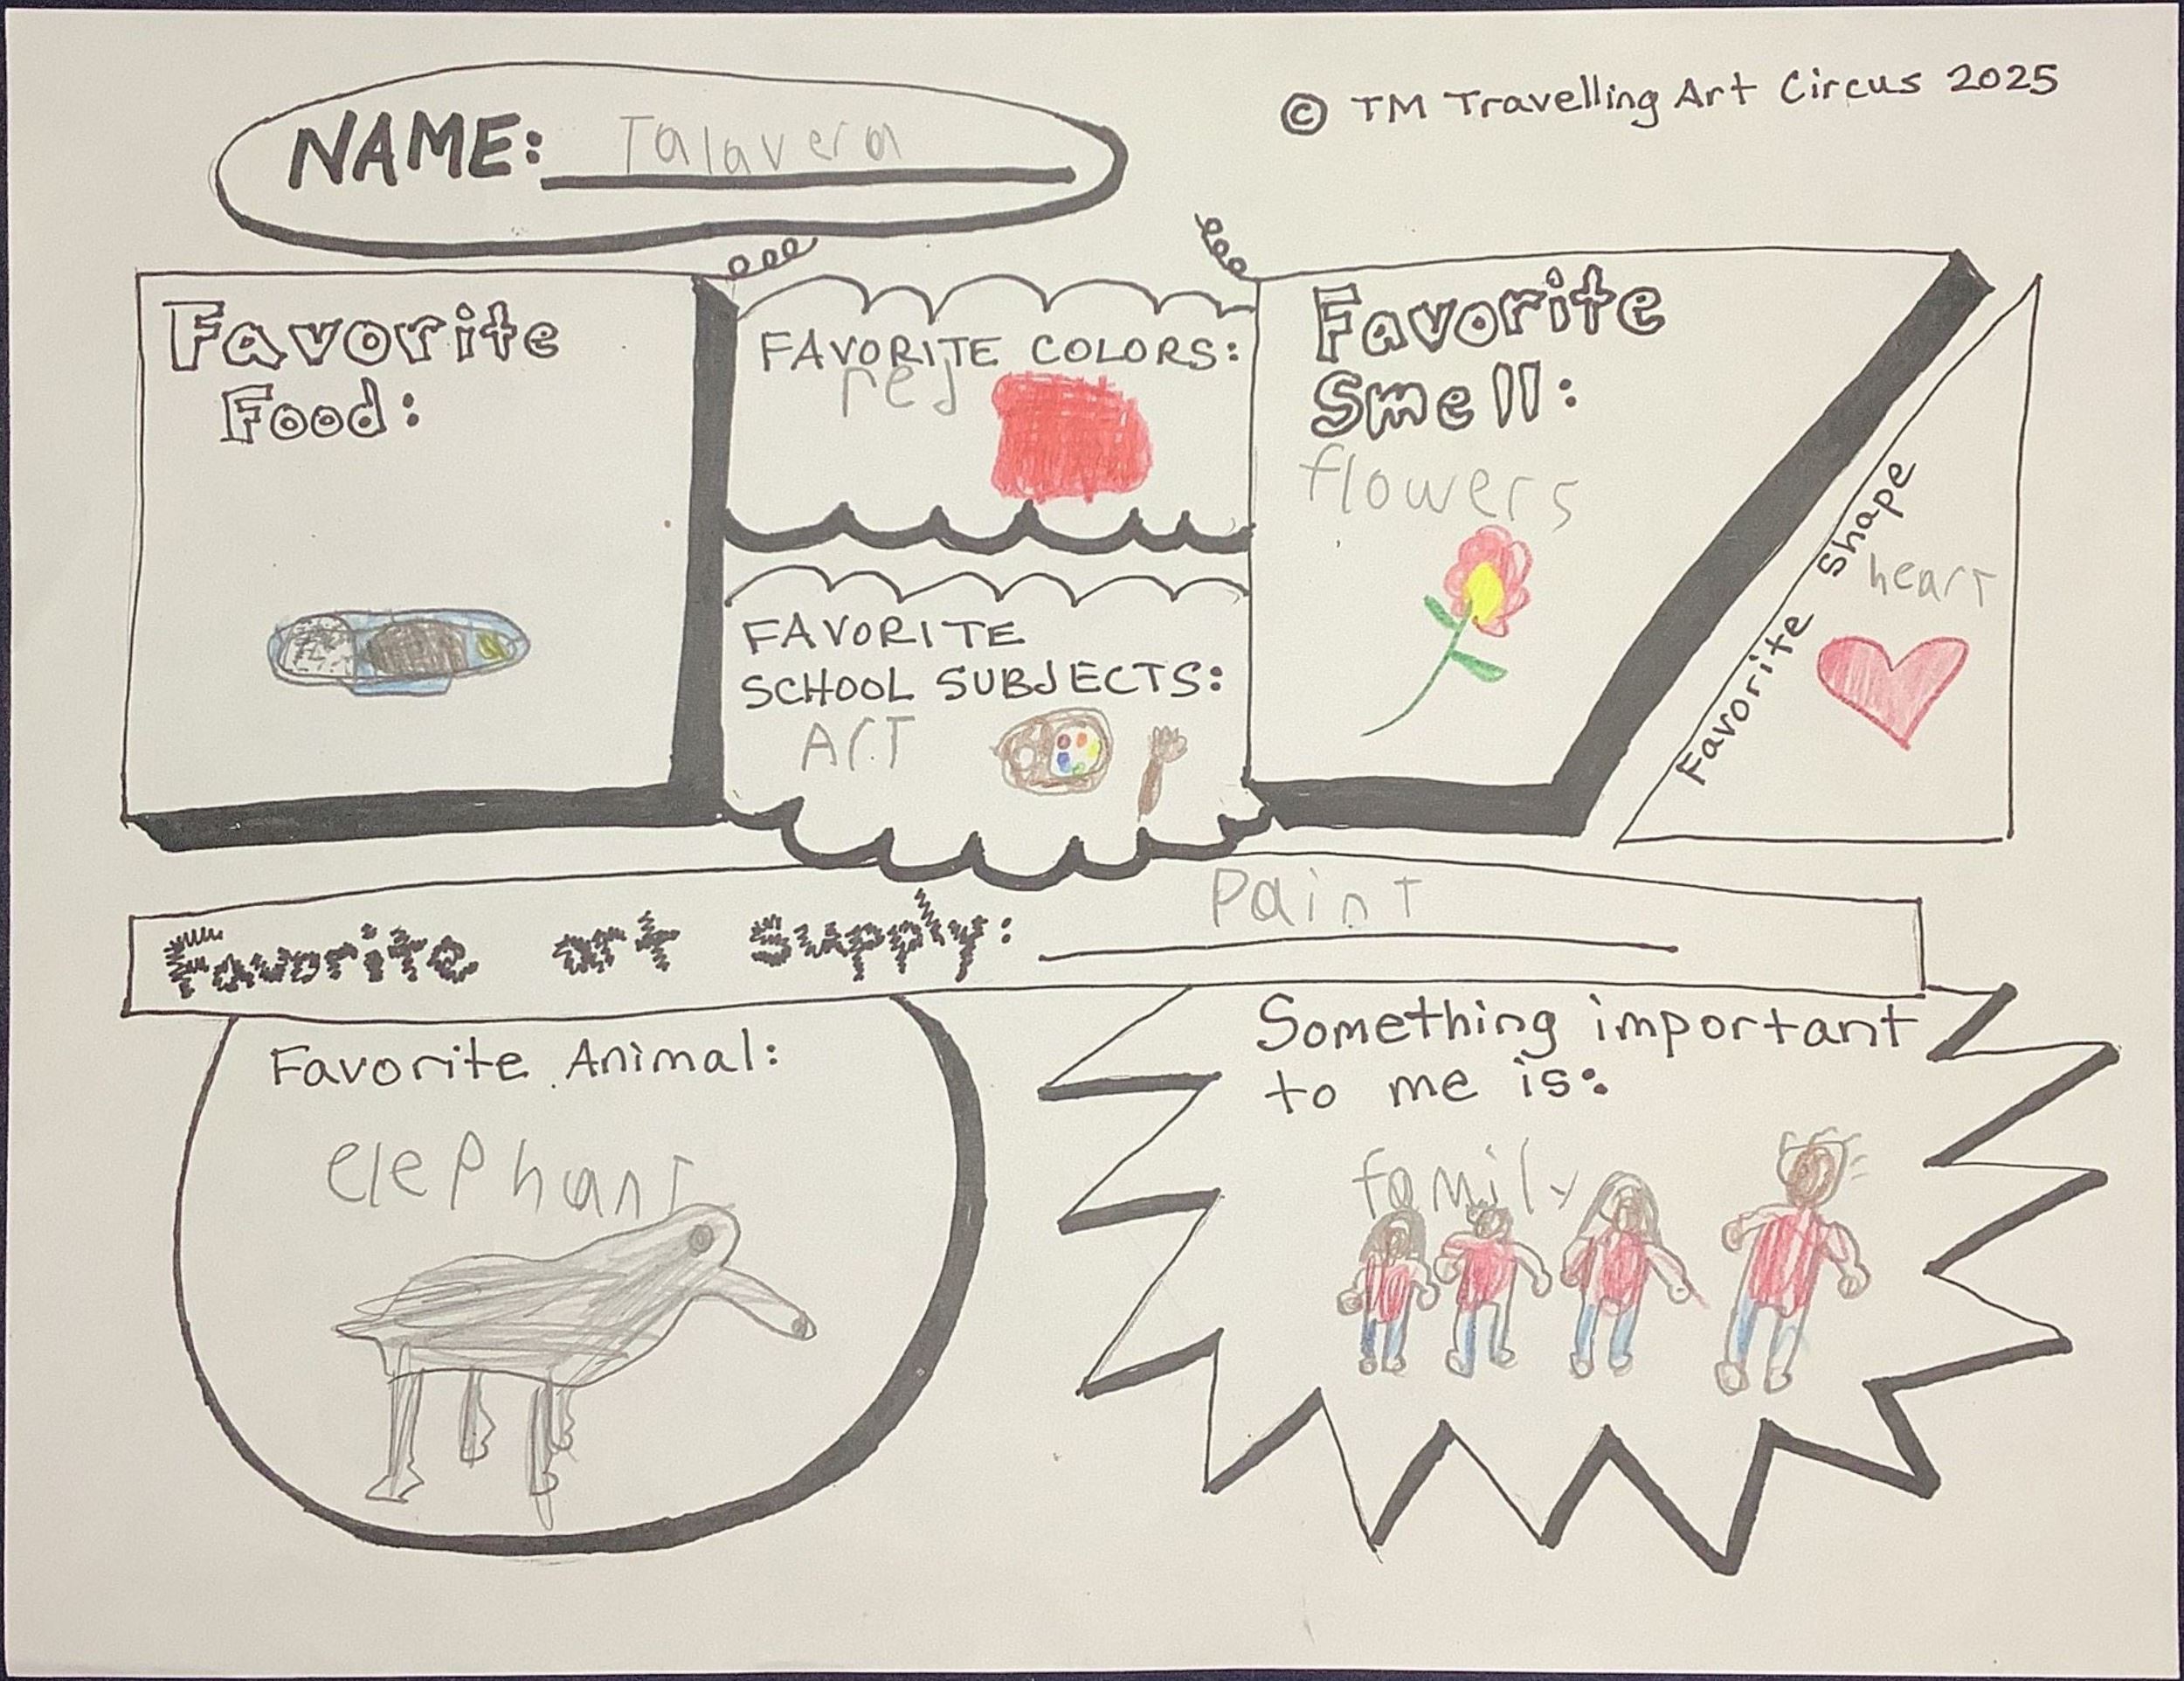 © TM Travelling Art Circus 2025
NAME: Talavera
Favorite
Food:
FAVORITE COLORS:
red
FAVORITE
SCHOOL SUBJECTS:
ArT
Favorite
Smell:
flowers
Favorite Shape
heart
Favorite art Supply: PainT
Favorite Animal:
elePhanT
Something important
to me is:
family